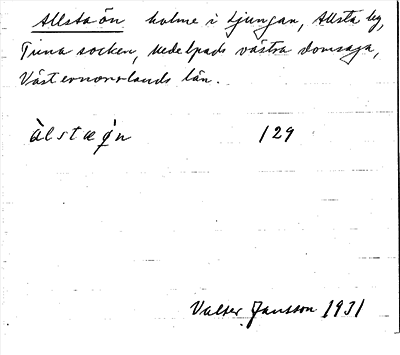 Allstaön holme i Ljungan, Allsta by,
Tuna socken, Medelpads västra domsaga,
Västernorrlands län.
àlstæǿn 129
Valter Jansson 1931